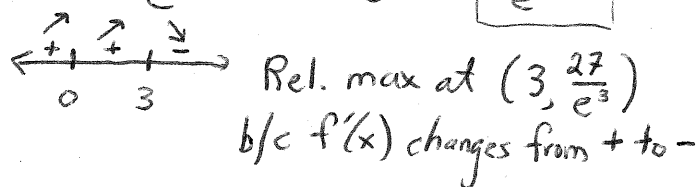 + + -
0 3
Rel. max at (3, 27/e³)
b/c f'(x) changes from + to -